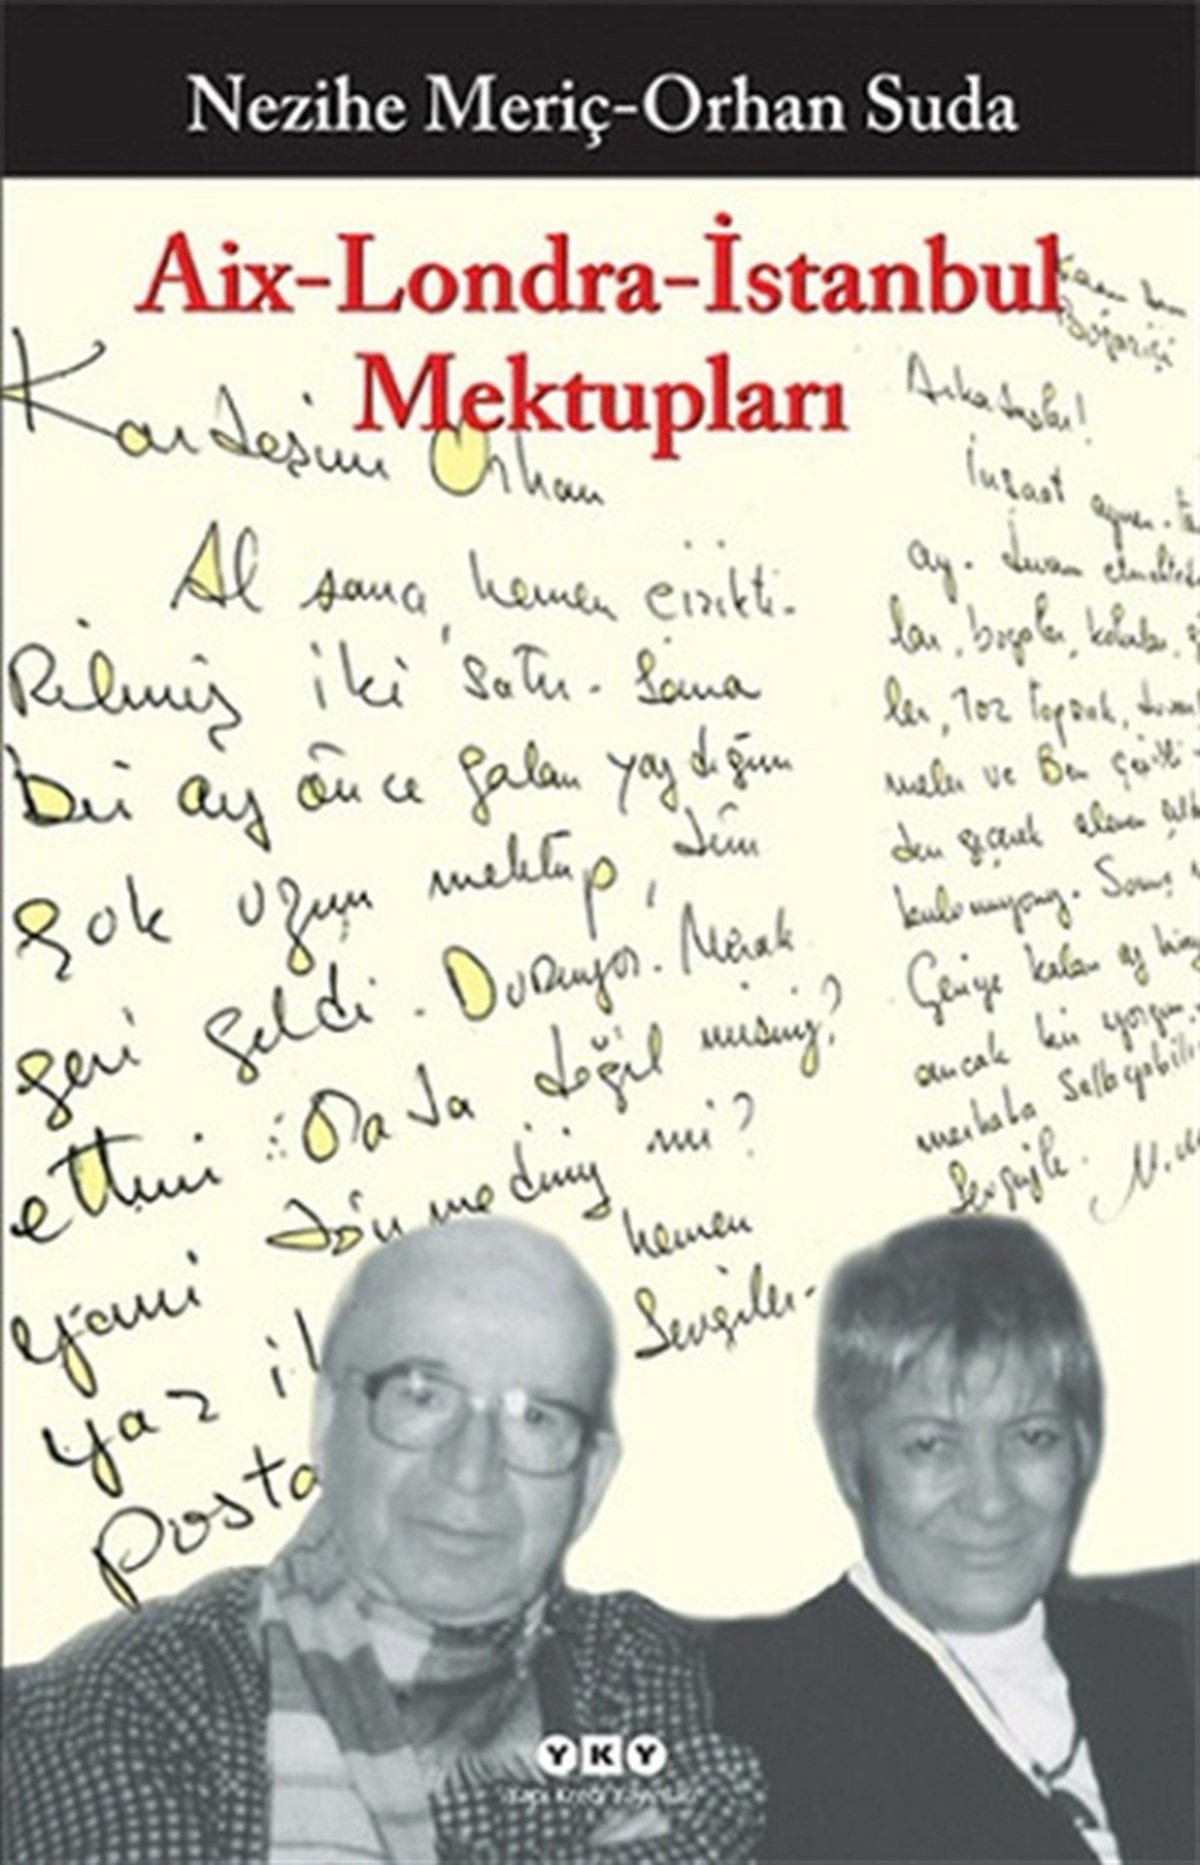 Nezihe Meriç-Orhan Suda
Aix-Londra-İstanbul
Mektupları
Kardeşim Orhan
Al sana, hemen çizikti-
Rilmiş iki satır. Sana
bir ay önce falan yazdığım
çok uzun mektup, dün
geri geldi. Duruyor. Merak
ettim: Orada değil misiniz?
yani dönmediniz mi?
hemen
yaz
Sevgiler.
Posta
Boğaziçi
Arkadaşlar!
İnşaat
ay. devam
lar, borular,
ler, toz toprak,
ve Ben
den geçerek
Geriye kalan
ancak bir yorgun,
merhaba
Sevgiyle.
YKY
Yapı Kredi Yayınları